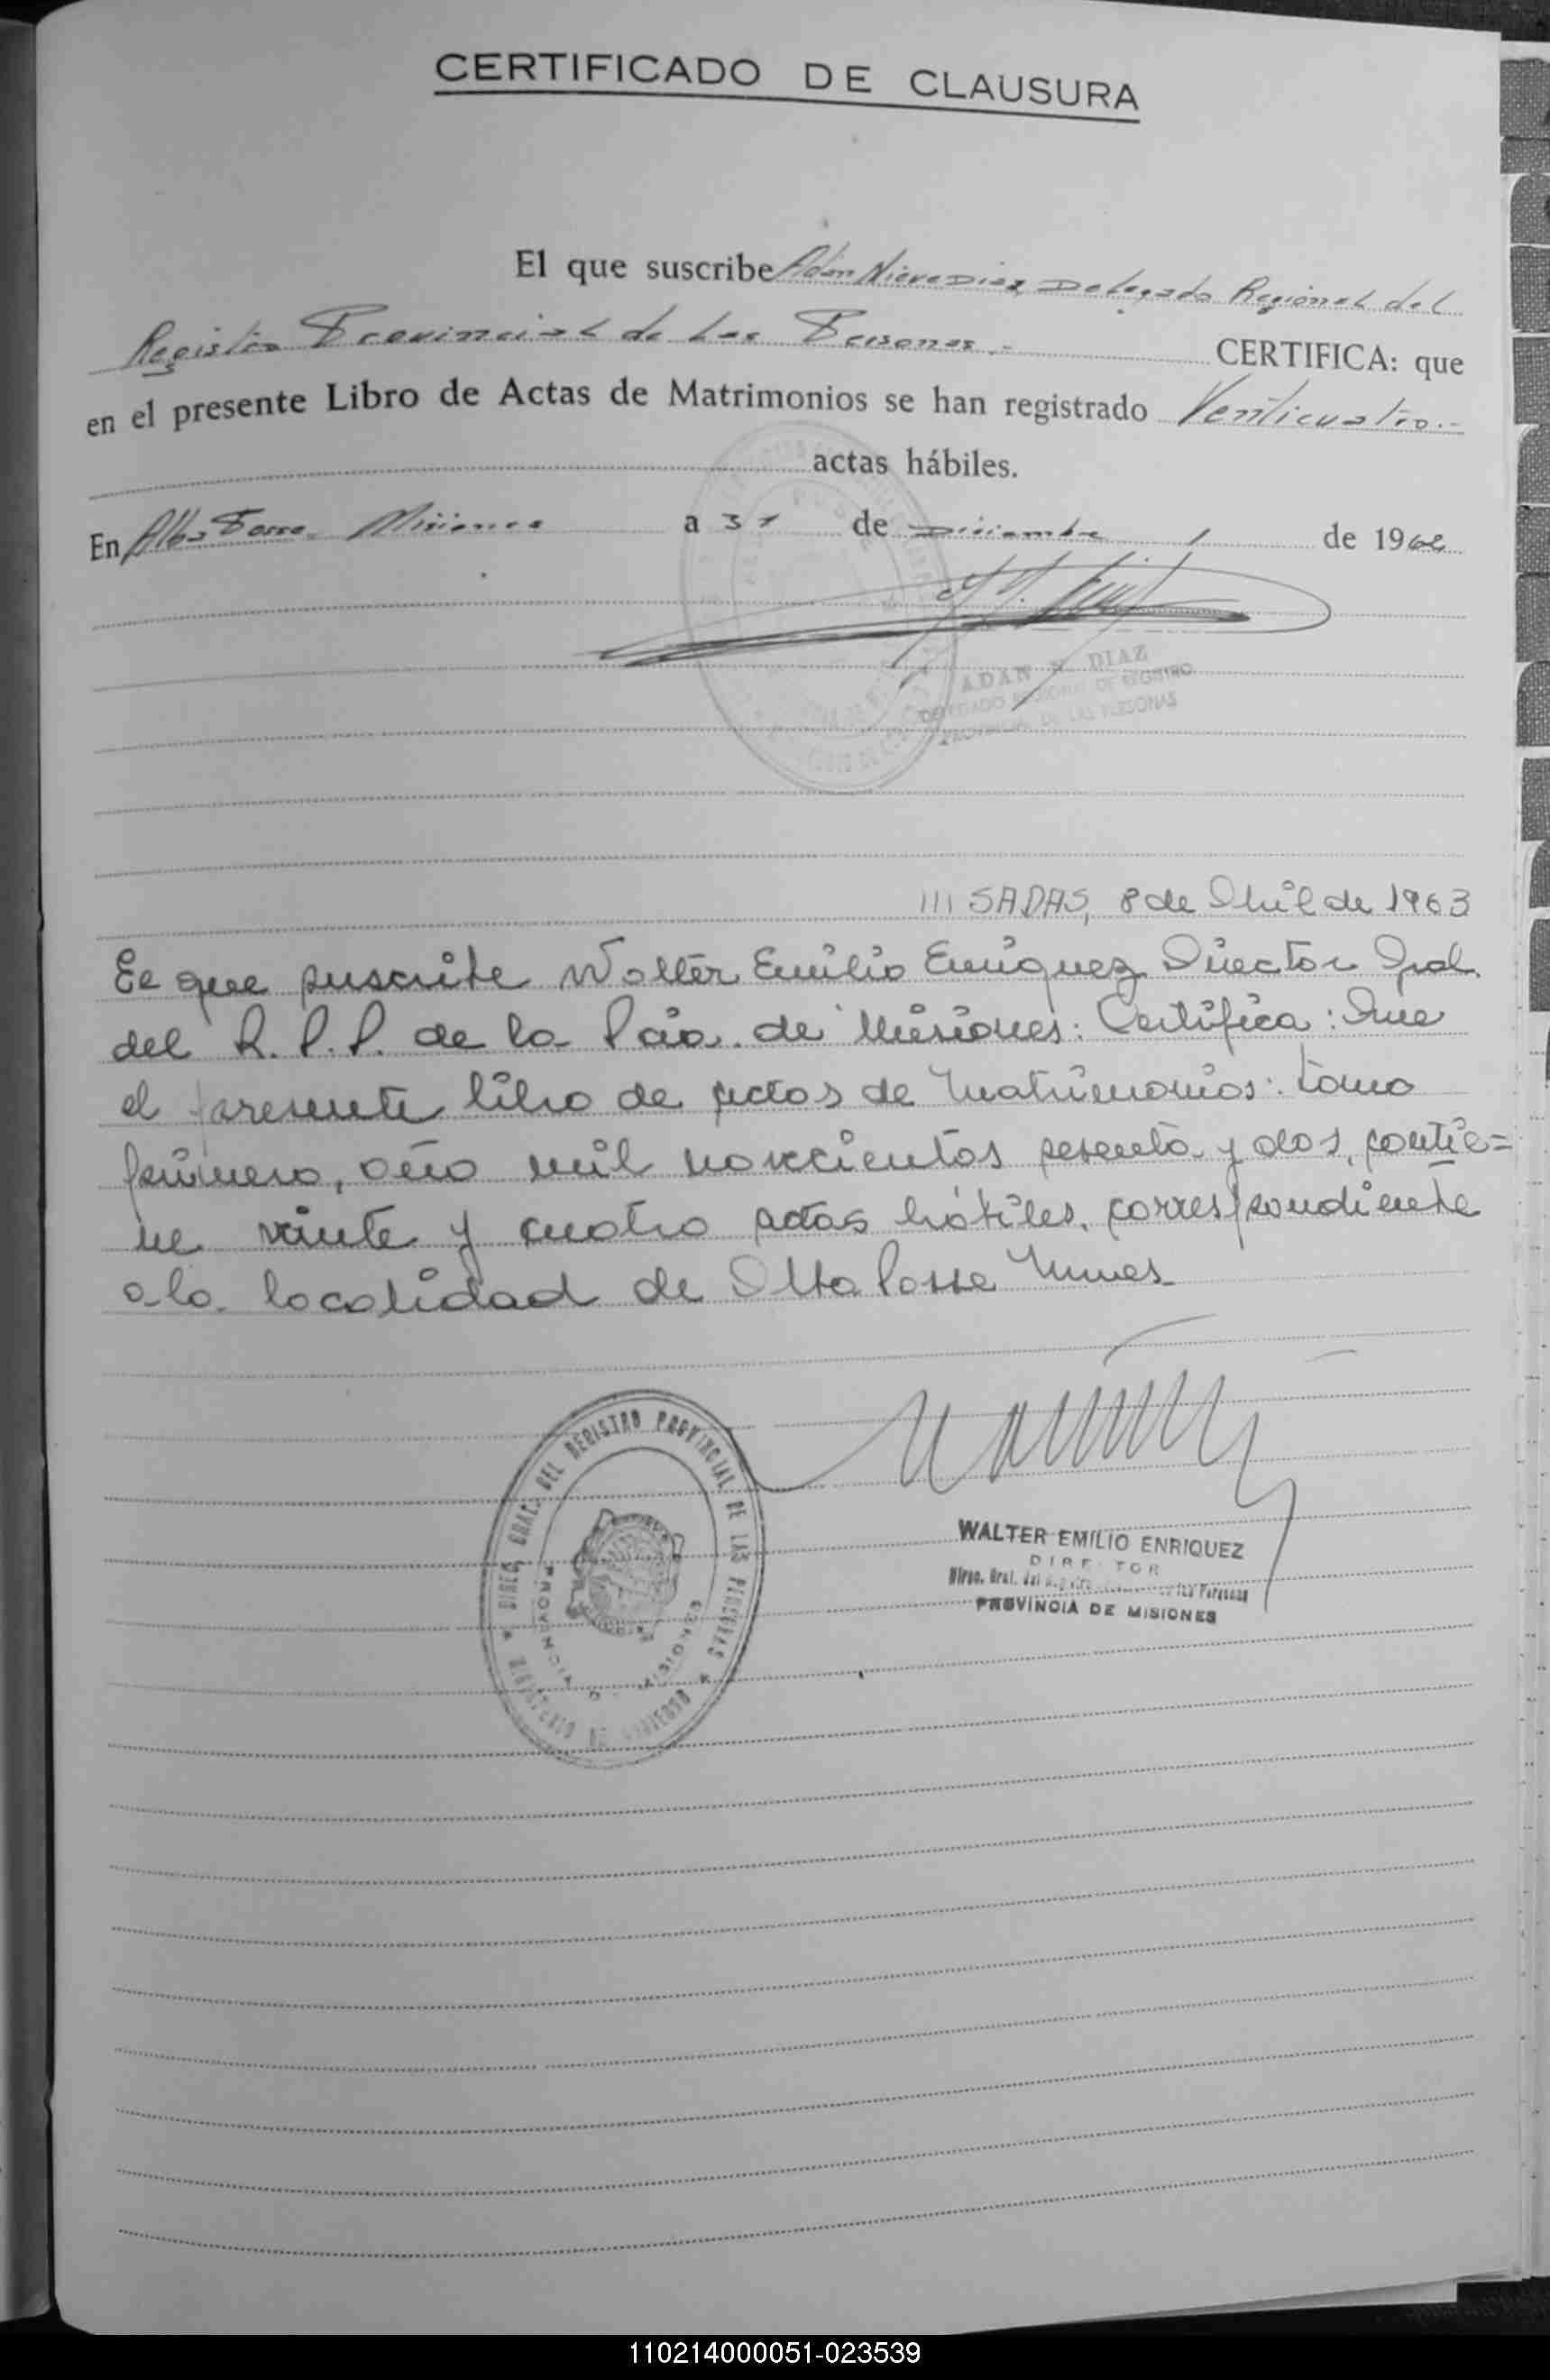 CERTIFICADO DE CLAUSURA
El que suscribe Adán Nieve Diaz, Delegado Regional del
Registro Provincial de Las Personas.- CERTIFICA: que
en el presente Libro de Actas de Matrimonios se han registrado Venticuatro.-
actas hábiles.
En Alba Posse Misiones a 31 de Diciembre de 1962
ADAN N. DIAZ
DELEGADO REGIONAL DE REGISTRO
PROVINCIAL DE LAS PERSONAS
///SADAS, 8 de Abril de 1963
El que suscribe Walter Emilio Enriquez Director Gral.
del R. P. P. de la Pcia. de Misiones: Certifica: Que
el presente libro de actas de Matrimonios: tomo
primero, año mil novecientos sesenta y dos, contie=
ne veinte y cuatro actas hábiles, correspondiente
a la localidad de Alba Posse Mnes
DIREC. GRAL. DEL REGISTRO PROVINCIAL DE LAS PERSONAS
PROVINCIA DE MISIONES
MINISTERIO DE GOBIERNO
WALTER EMILIO ENRIQUEZ
DIRECTOR
Direc. Gral. del Registro de las Personas
PROVINCIA DE MISIONES
110214000051-023539